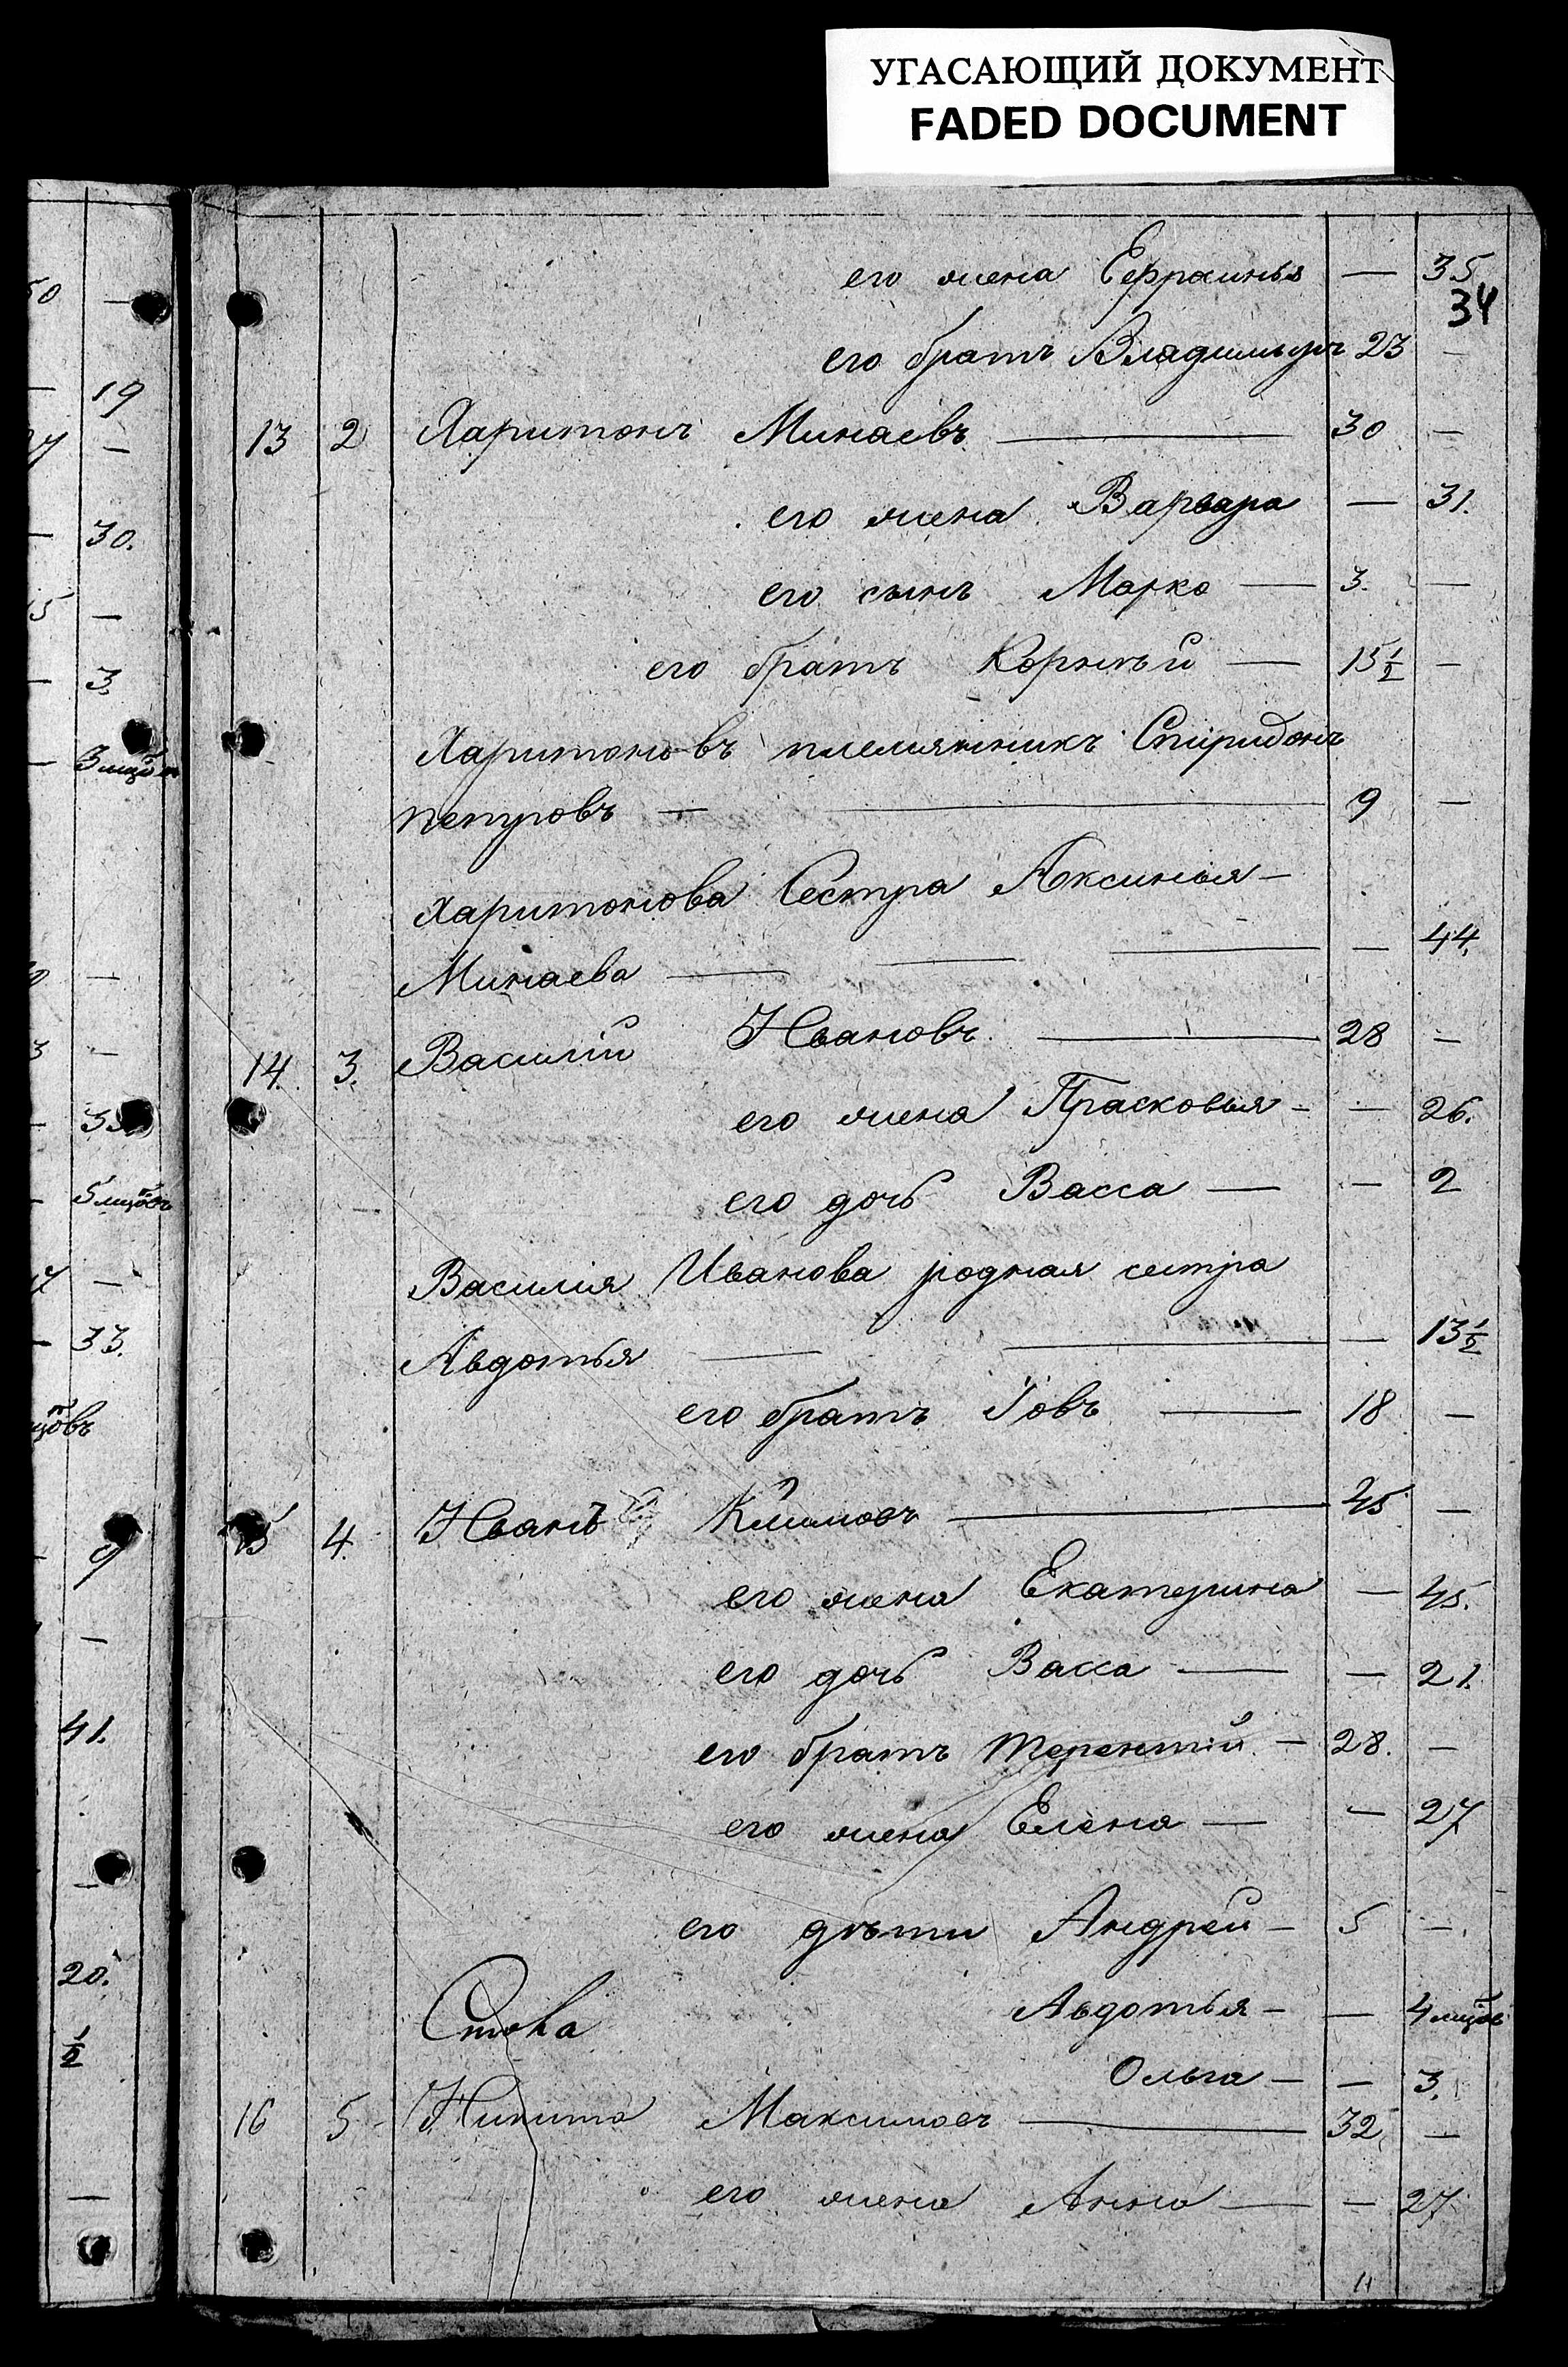 УГАСАЮЩИЙ ДОКУМЕНТ
FADED DOCUMENT
его жена Ефросинья — 35
34
его братъ Владимиръ 23 —
13 2 Харитонъ Минаевъ — 30 —
его жена Варвара — 31.
его сынъ Марко — 3. —
его братъ Корнѣй — 15 1/2 —
Харитоновъ племянникъ Спиридонъ
петровъ — 9 —
Харитонова Сестра Аксинья —
Минаева — — — — 44.
14. 3. Василій Ивановъ — 28 —
его жена Прасковья — — 26.
его дочь Васса — — 2
Василия Иванова родная сестра
Авдотья — — — 13 1/2
его братъ Іовъ — 18 —
15 4. Иванъ Климовъ — 45 —
его жена Екатерина — 45.
его дочь Васса — — 21.
его братъ терентій — 28. —
его жена Елена — — 27
его дѣти Андрей — 5 —
Авдотья — — 4 мцов
Ольга — — 3.
16 5 Никита Максимовъ — 32 —
его жена Анна — — 27
11
50 —
19
—
— 30.
15 —
— 3.
— 3
—
—
5
—
— 33.
9
—
41.
20.
1/2
—